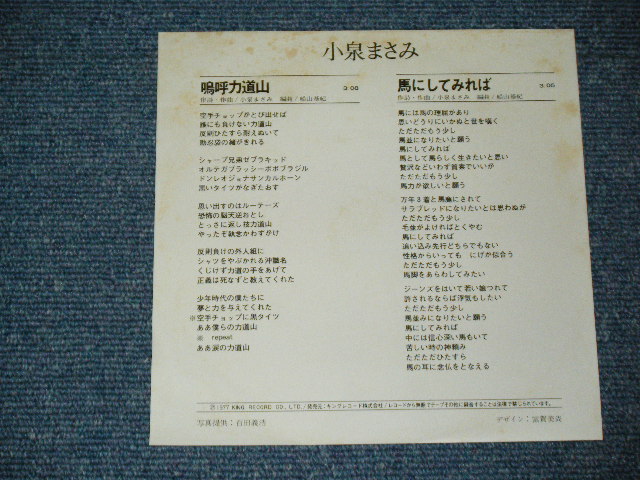 小泉まさみ
嗚呼力道山 3:08
作詩・作曲/小泉まさみ 編曲/
空手チョップがとび出せば
誰にも負けない力道山
反則ひたすら耐えぬいて
勘忍袋の緒がきれる
シャープ兄弟ゼブラキッド
オルテガブラッシーボボブラジル
ドンレオジョナサンカルホーン
黒いタイツがなぎたおす
思い出すのはルーテーズ
恐怖の脳天逆おとし
とっさに返し技力道山
やったぞ執念かわずがけ
反則負けの外人組に
シャツをやぶかれる沖識名
くじけず力道の手をあげて
正義は死なずと教えてくれた
少年時代の僕たちに
夢と力を与えてくれた
※空手チョップに黒タイツ
ああ僕らの力道山
※ repeat
ああ涙の力道山
馬にしてみれば 3:05
作詩・作曲/小泉まさみ 編曲/
馬には馬の理屈があり
思いどうりにいかぬと世を嘆く
ただただもう少し
馬並になりたいと願う
馬にしてみれば
馬として馬らしく生きたいと思い
贅沢などいわず質素でいいが
ただただもう少し
馬力が欲しいと願う
万年3着と馬鹿にされて
サラブレッドになりたいとは思わぬが
ただただもう少し
毛並がよければとくやむ
馬にしてみれば
追い込み先行どちらでもない
性格からいっても にげが似合う
ただただもう少し
馬脚をあらわしてみたい
ジーンズをはいて若い娘つれて
許されるならば浮気もしたい
ただただもう少し
馬並みになりたいと願う
馬にしてみれば
中には信心深い馬もいて
苦しい時の神頼み
ただただひたすら
馬の耳に念仏をとなえる
Ⓟ1977 KING RECORD CO., LTD./発売元:キングレコード株式会社/レコードから無断でテープその他に録音することは法律で禁じられています。
写真提供:百田義浩
デザイン: